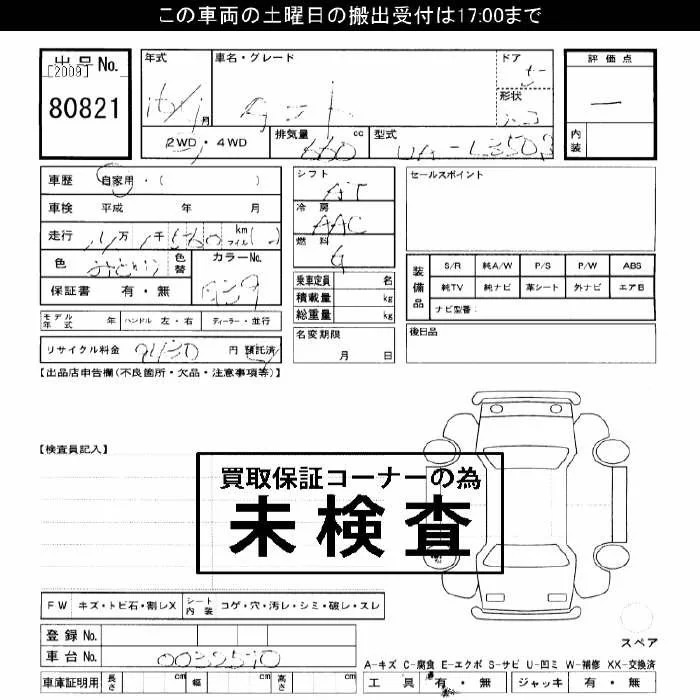 この車両の土曜日の搬出受付は17:00まで
出品No.
[2009]
80821
年式
月
車名・グレード
ドア
形状
2WD・4WD
排気量
660 cc
型式
UA-L350S
評価点
内装
車歴 自家用・( )
車検 平成 年 月
走行 万 千 km マイル( )
色
色替
カラーNo.
保証書 有・無
モデル年式 年 ハンドル 左・右 ディーラー・並行
リサイクル料金 円 預託済
シフト
AT
冷房
AAC
燃料
G
乗車定員 名
積載量 kg
総重量 kg
名変期限
月 日
セールスポイント
装備品
S/R 純A/W P/S P/W ABS
純TV 純ナビ 革シート 外ナビ エアB
ナビ型番:
後日品
【出品店申告欄(不良箇所・欠品・注意事項等)】
【検査員記入】
買取保証コーナーの為
未検査
FW キズ・トビ石・割レX シート内装 コゲ・穴・汚レ・シミ・破レ・スレ
登録 No.
車台 No. 0032570
車庫証明用 長さ cm 幅 cm 高さ cm
スペア
A-キズ C-腐食 E-エクボ S-サビ U-凹ミ W-補修 XX-交換済
工具 有・無 ジャッキ 有・無